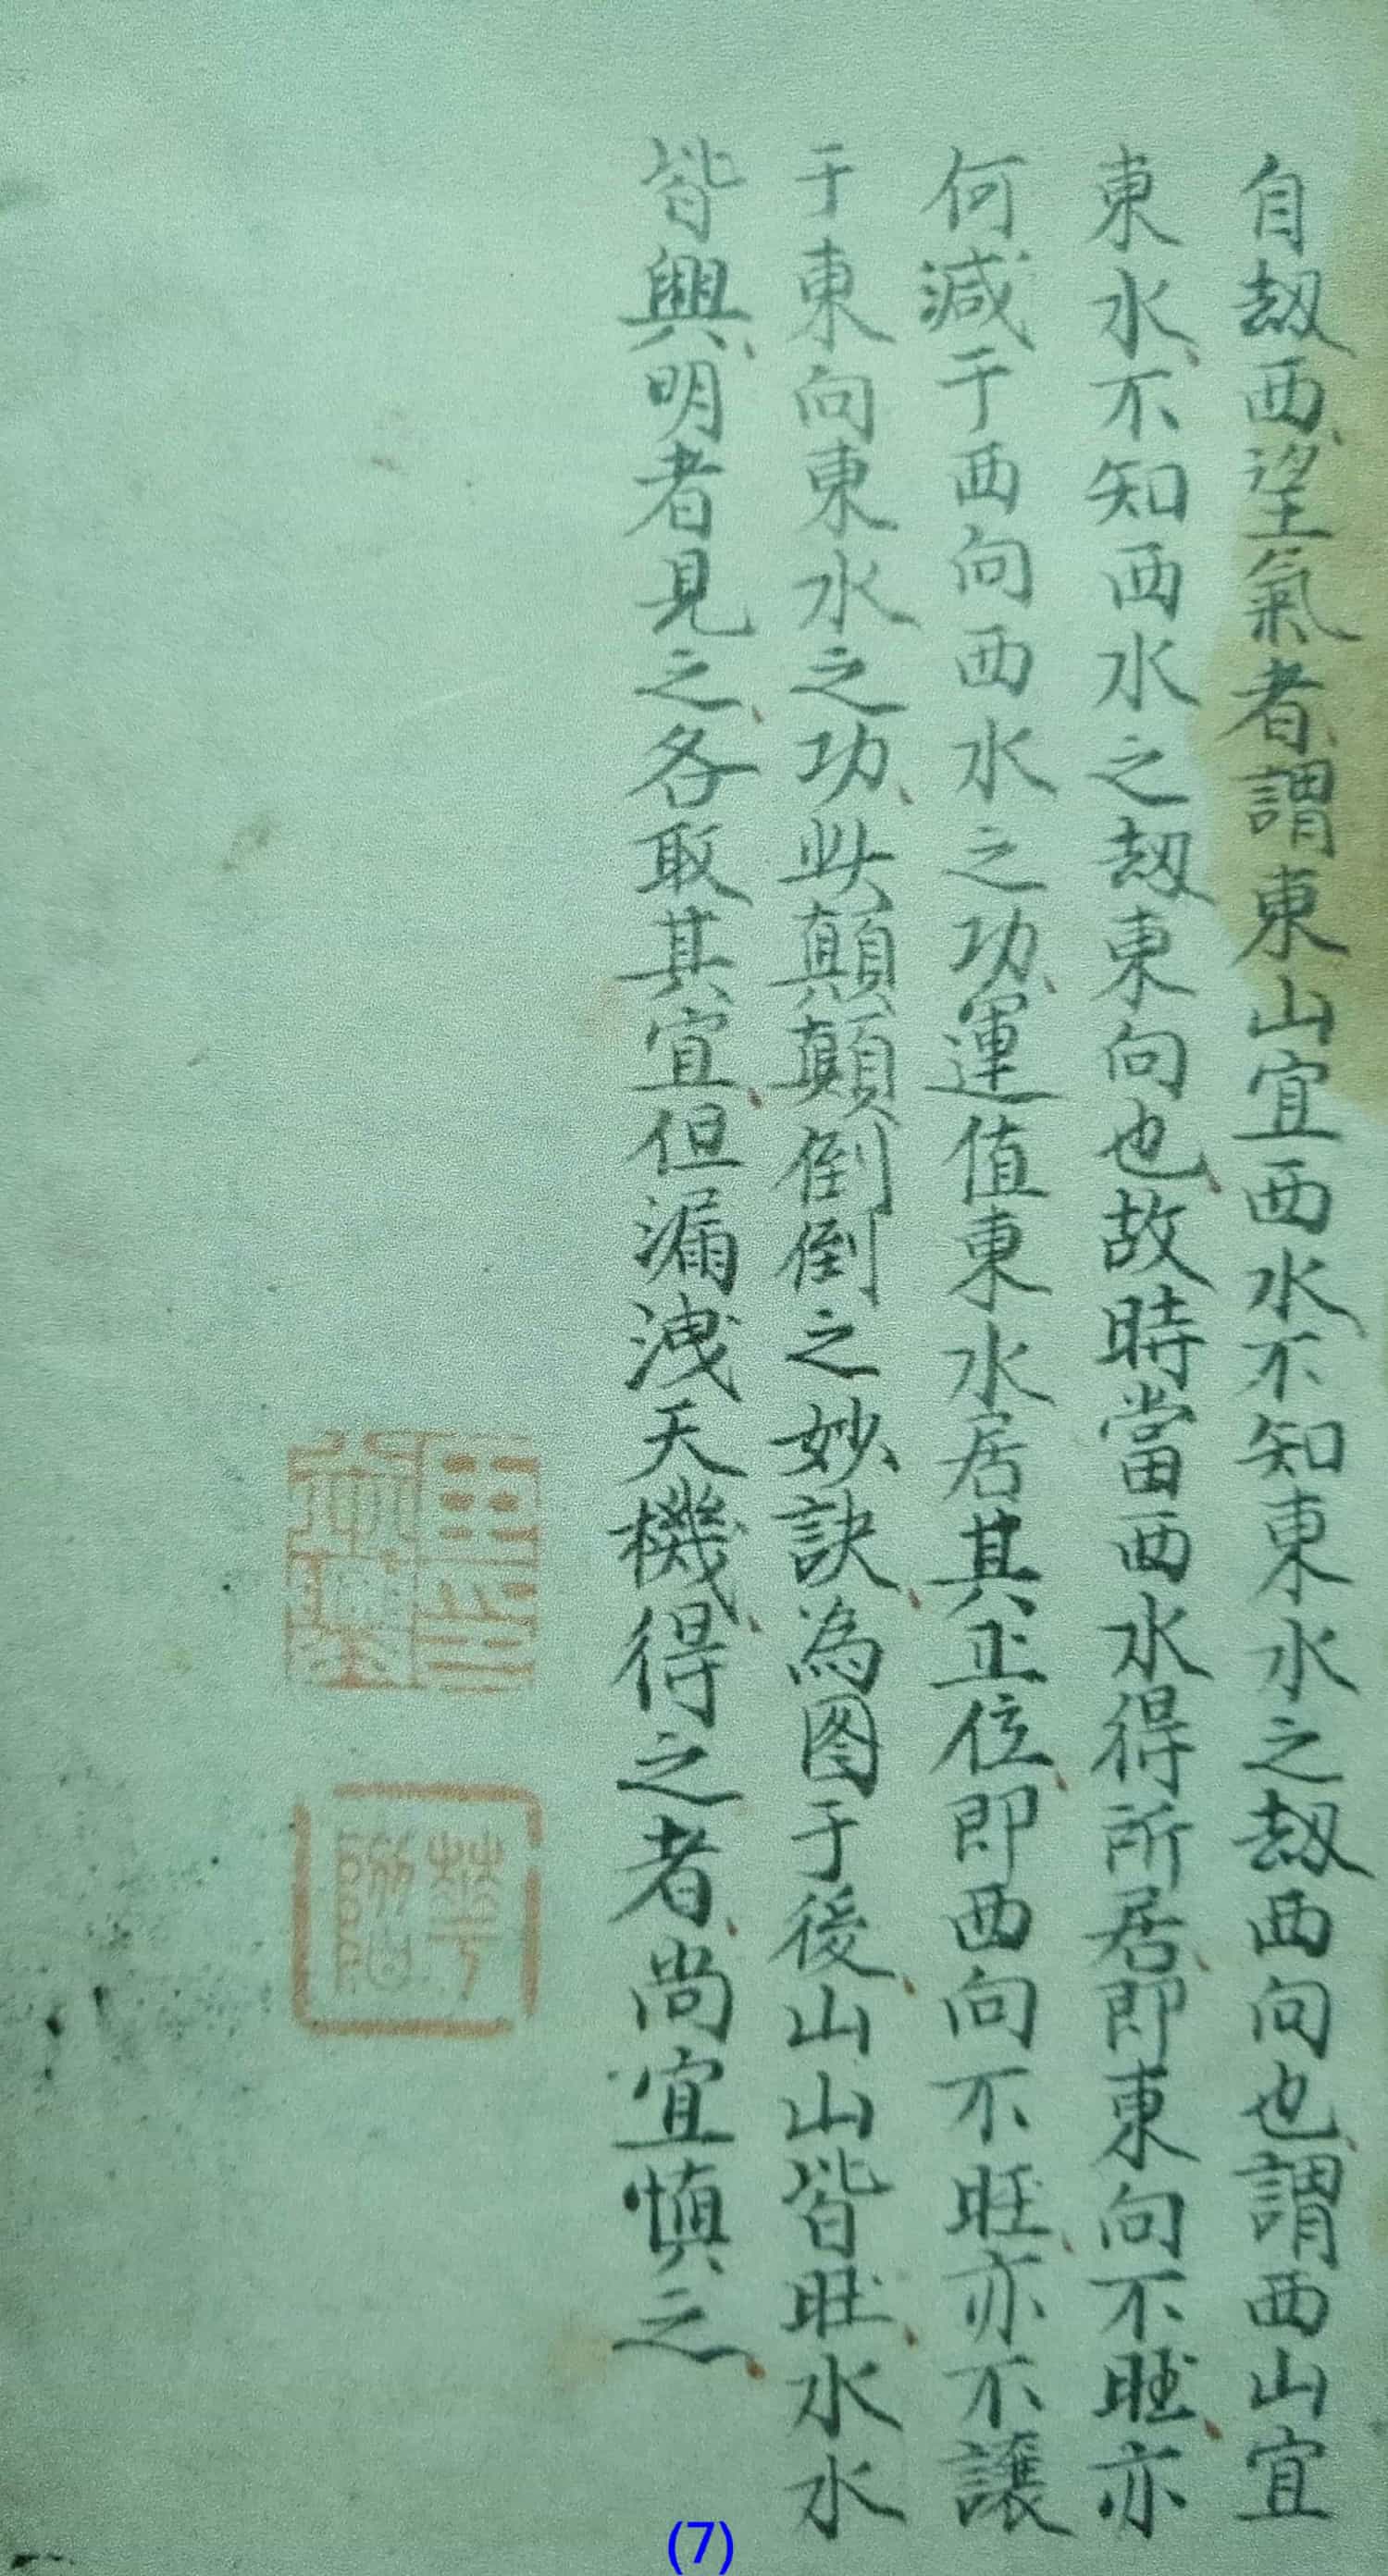 自刼西望氣者謂東山宜西水不知東水之刼西向也謂西山宜
東水不知西水之刼東向也故時當西水得所居即東向不旺亦
何減于西向西水之功運值東水居其正位即西向不旺亦不讓
于東向東水之功此顛顛倒倒之妙訣為图于後山山皆旺水水
皆興明者見之各取其宜但漏洩天機得之者尚宜慎之
(7)